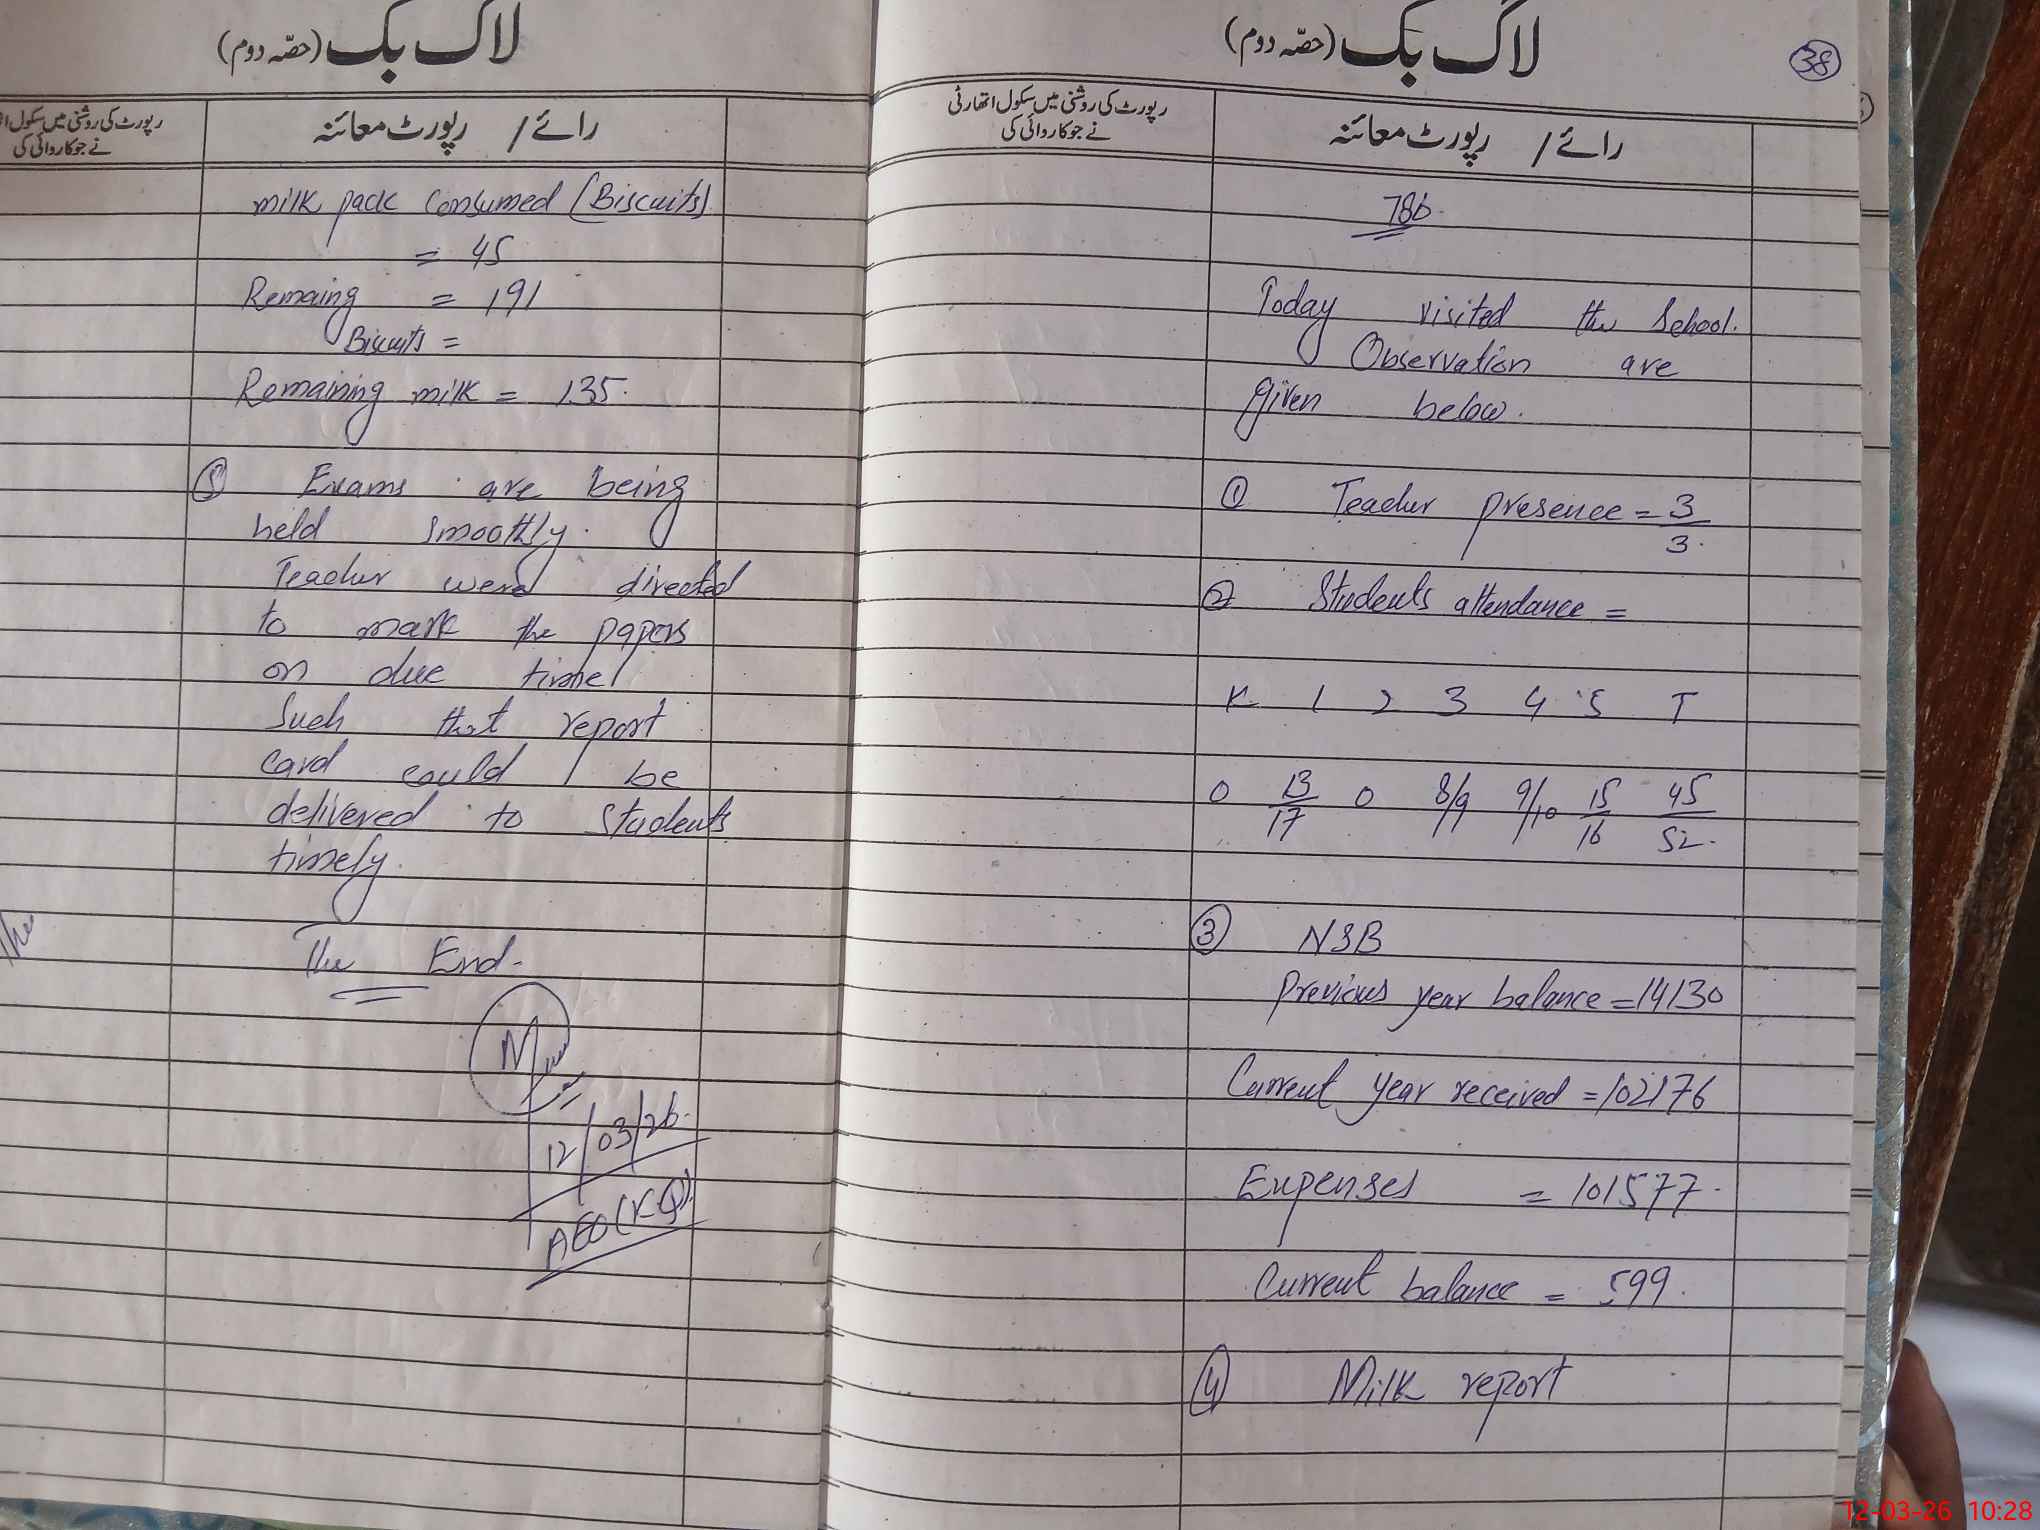 لاگ بک (حصّہ دوم)
38
رپورٹ کی روشنی میں سکول اتھارٹی
نے جو کاروائی کی
رائے / رپورٹ معائنہ
786.
Today visited the School.
Observation are
given below.
① Teacher presence = 3/3.
② Students attendance =
K 1 2 3 4 5 T
0 13/17 0 8/9 9/10 15/16 45/52.
③ NSB
Previous year balance = 14130
Current year received = 102176
Expenses = 101577.
Current balance = 599.
④ Milk report
لاگ بک (حصّہ دوم)
رپورٹ کی روشنی میں سکول
نے جو کاروائی کی
رائے / رپورٹ معائنہ
milk pack Consumed (Biscuits)
= 45
Remaing = 191
Biscuits =
Remaining milk = 135.
⑤ Exams are being
held smoothly.
Teacher were directed
to mark the papers
on due time
Such that report
card could be
delivered to Students
timely.
The End.
12/03/26.
AEO (KQ)
12-03-26 10:28